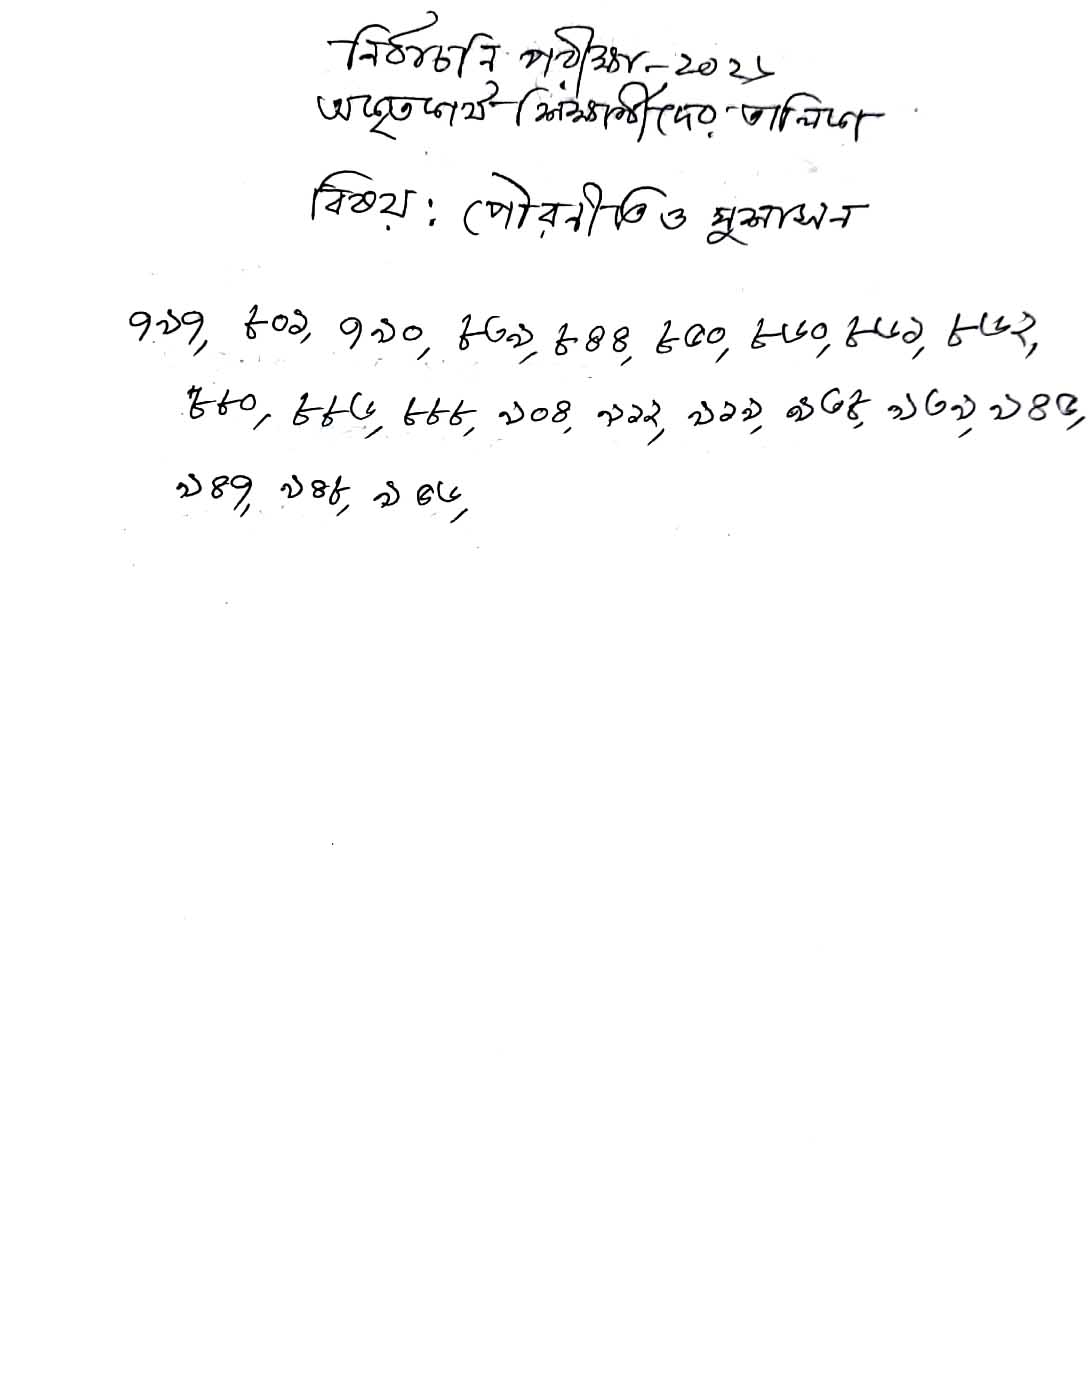 নির্বাচনি পরীক্ষা-২০২১
অকৃতকার্য শিক্ষার্থীদের তালিকা
বিষয়: পৌরনীতি ও সুশাসন
৭৯৭, ৮০১, ৭৯০, ৮৩৯, ৮৪৪, ৮৫০, ৮৬০, ৮৬১, ৮৬২,
৮৮০, ৮৮৬, ৮৮৮, ৯০৪, ৯১২, ৯১৯, ৯৩৮, ৯৩৯, ৯৪৫,
৯৪৭, ৯৪৮, ৯৫৬,